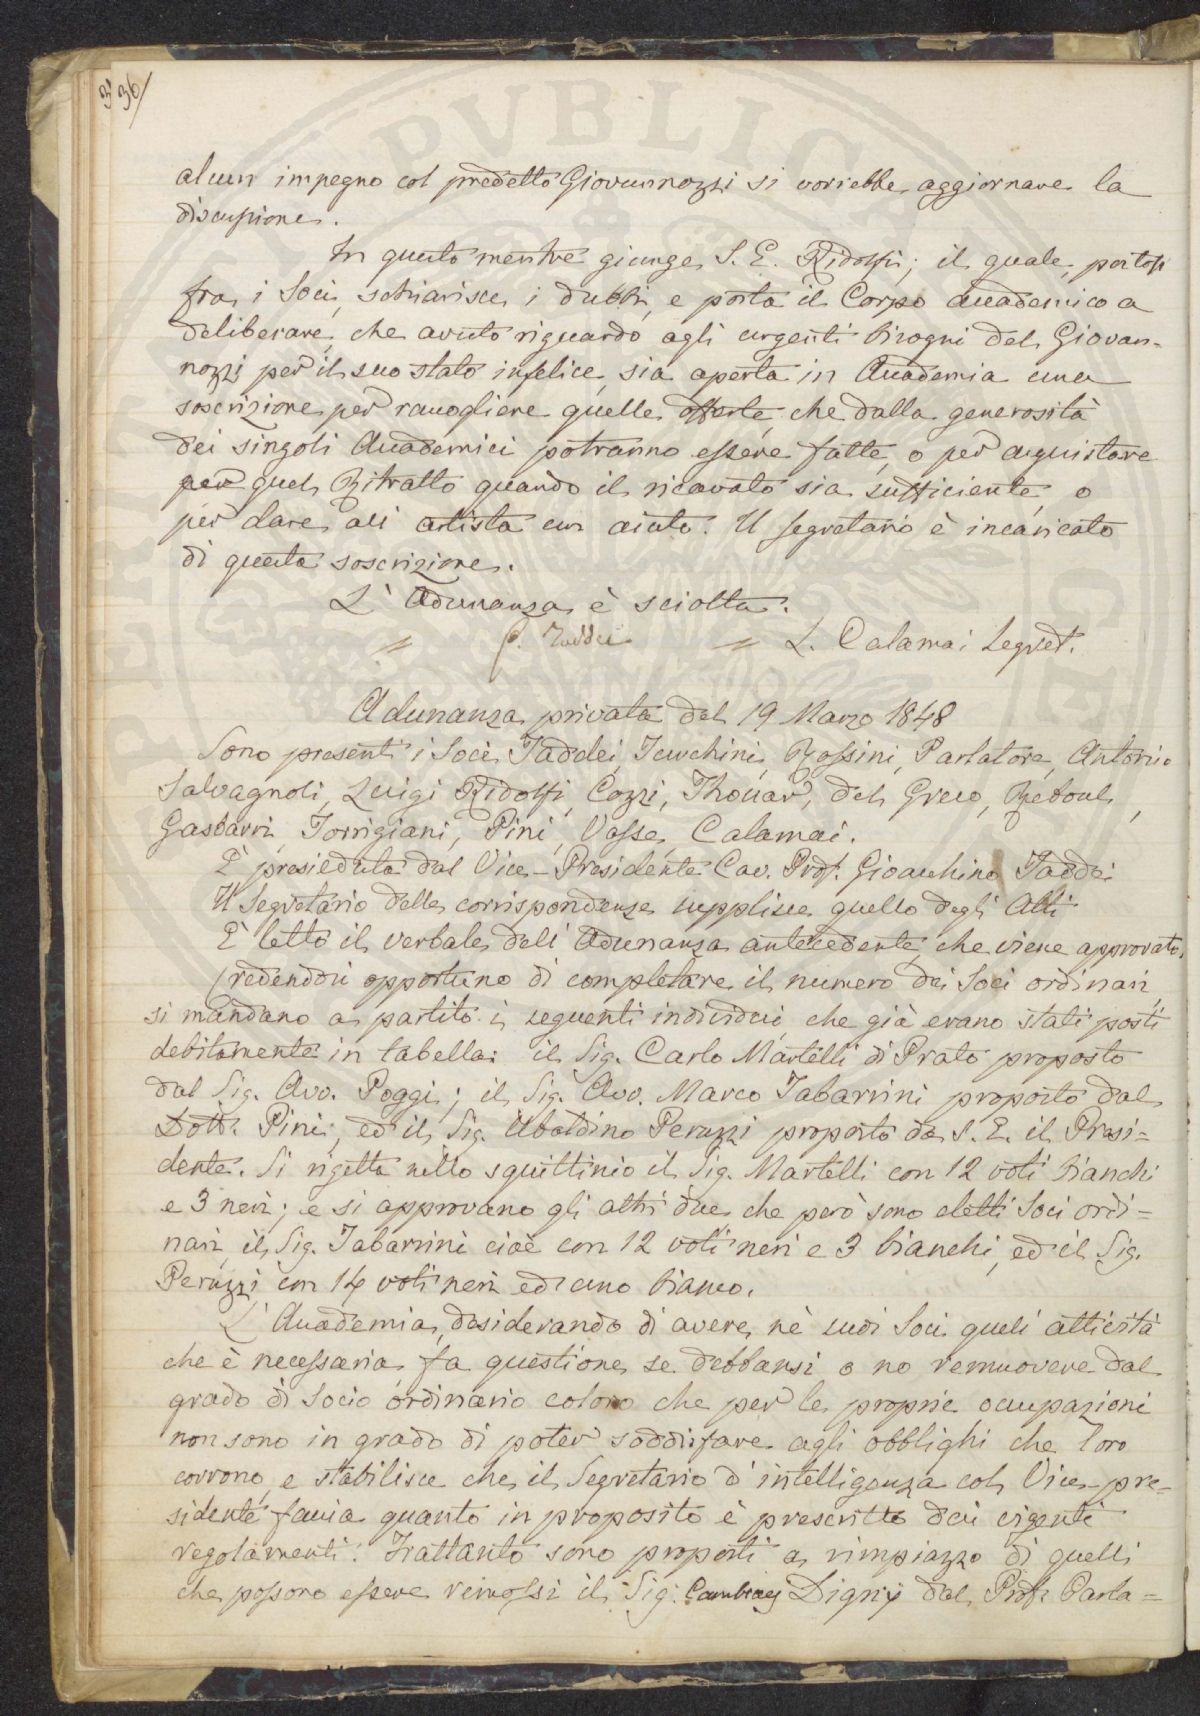 336/
alcun impegno col predetto Giovannozzi si vorrebbe aggiornare la
discussione.
In questo mentre giunge S. E. Ridolfi; il quale, portosi
fra i Soci, schiarisce i dubbi, e porta il Corpo accademico a
deliberare, che avuto riguardo agli urgenti bisogni del Giovan-
nozzi per il suo stato infelice, sia aperta in Accademia una
soscrizione per raccogliere quelle offerte, che dalla generosità
dei singoli Accademici potranno essere fatte, o per acquistare
per quel Ritratto quando il ricavato sia sufficiente, o
per dare all' artista un aiuto. Il segretario è incaricato
di questa soscrizione.
L' Adunanza è sciolta.
G. Taddei L. Calamai Segret.
Adunanza privata del 19 Marzo 1848
Sono presenti i Soci Taddei, Vecchini, Rossini, Parlatore, Antonio
Salvagnoli, Luigi Ridolfi, Cozzi, Thouar, del Greco, Reboul,
Gasbarri, Torrigiani, Pini, Vasse, Calamai.
È presieduta dal Vice-Presidente Cav. Prof. Gioacchino Taddei
Il Segretario delle corrispondenze supplisce quello degli Atti
È letto il verbale dell' Adunanza antecedente, che viene approvato.
Credendosi opportuno di completare il numero dei Soci ordinari,
si mandano a partito i seguenti individui, che già erano stati posti
debitamente in tabella: il Sig. Carlo Martelli di Prato proposto
dal Sig. Avv. Poggi; il Sig. Avv. Marco Tabarrini proposto dal
Dott. Pini; ed il Sig. Ubaldino Peruzzi proposto da S. E. il Presi=
dente. Si rigetta nello squittinio il Sig. Martelli con 12 voti bianchi
e 3 neri; e si approvano gli altri due che però sono eletti Soci ordi=
nari, il Sig. Tabarrini cioè con 12 voti neri e 3 bianchi, ed il Sig.
Peruzzi con 14 voti neri ed uno bianco.
L' Accademia, desiderando di avere nè suoi Soci quell' attività
che è necessaria, fa questione se debbansi o no remuovere dal
grado di Socio ordinario coloro che per le proprie occupazioni
non sono in grado di poter soddisfare agli obblighi che loro
corrono, e stabilisce che il Segretario d' intelligenza col Vice-pre=
sidente faccia quanto in proposito è prescritto dai vigenti
regolamenti. Trattanto sono proposti a rimpiazzo di quelli
che possono essere remossi il Sig. Cambray Digny dal Prof. Parla=